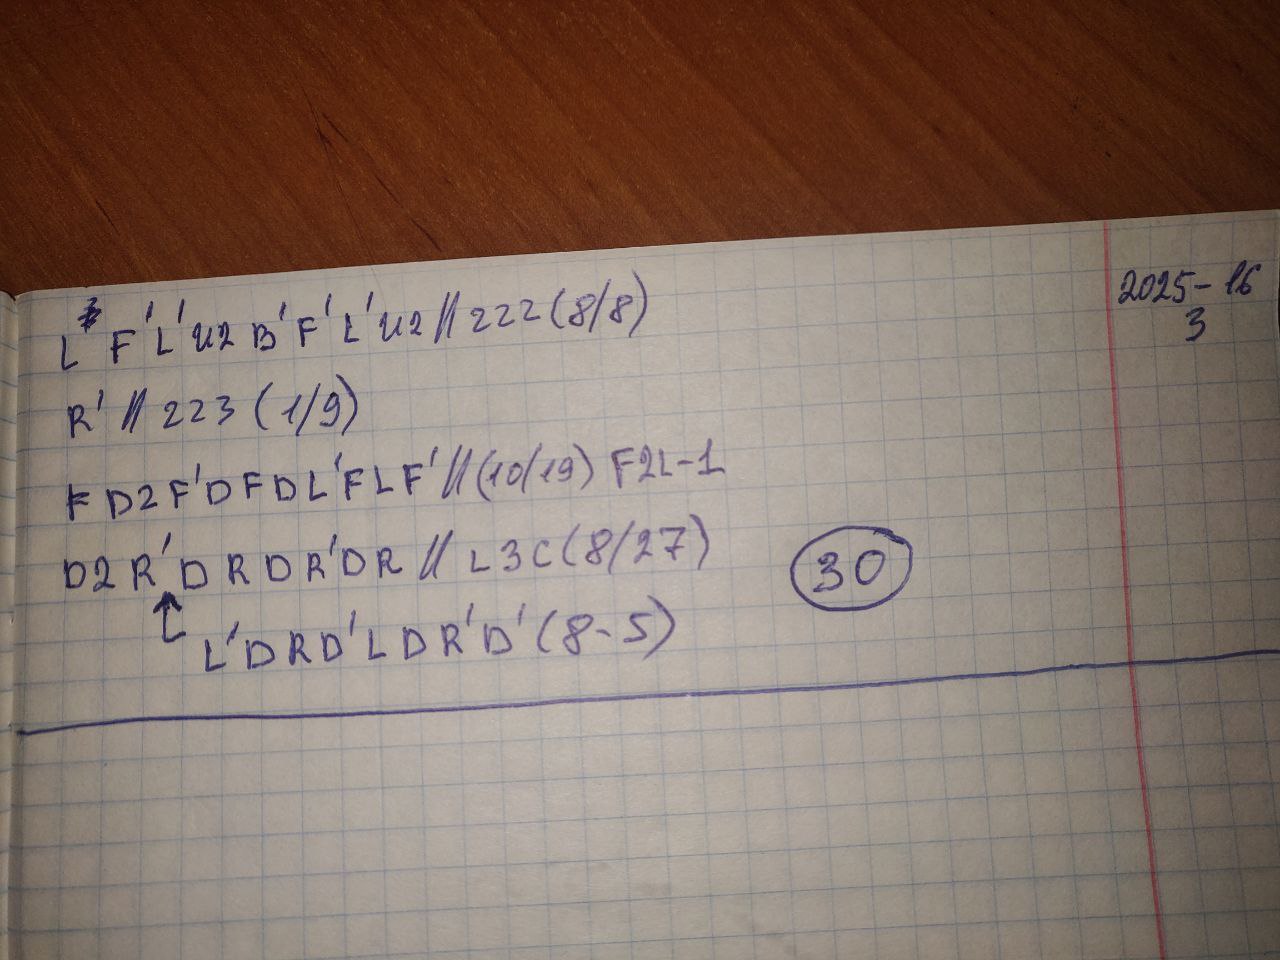 L F' L' U2 B' F' L' U2 // 222 (8/8)
R' // 223 (1/9)
F D2 F' D F D L' F L F' // (10/19) F2L-1
D2 R' D R D R' D R // L3C (8/27)
L' D R D' L D R' D' (8-5)
30
2025-16
3